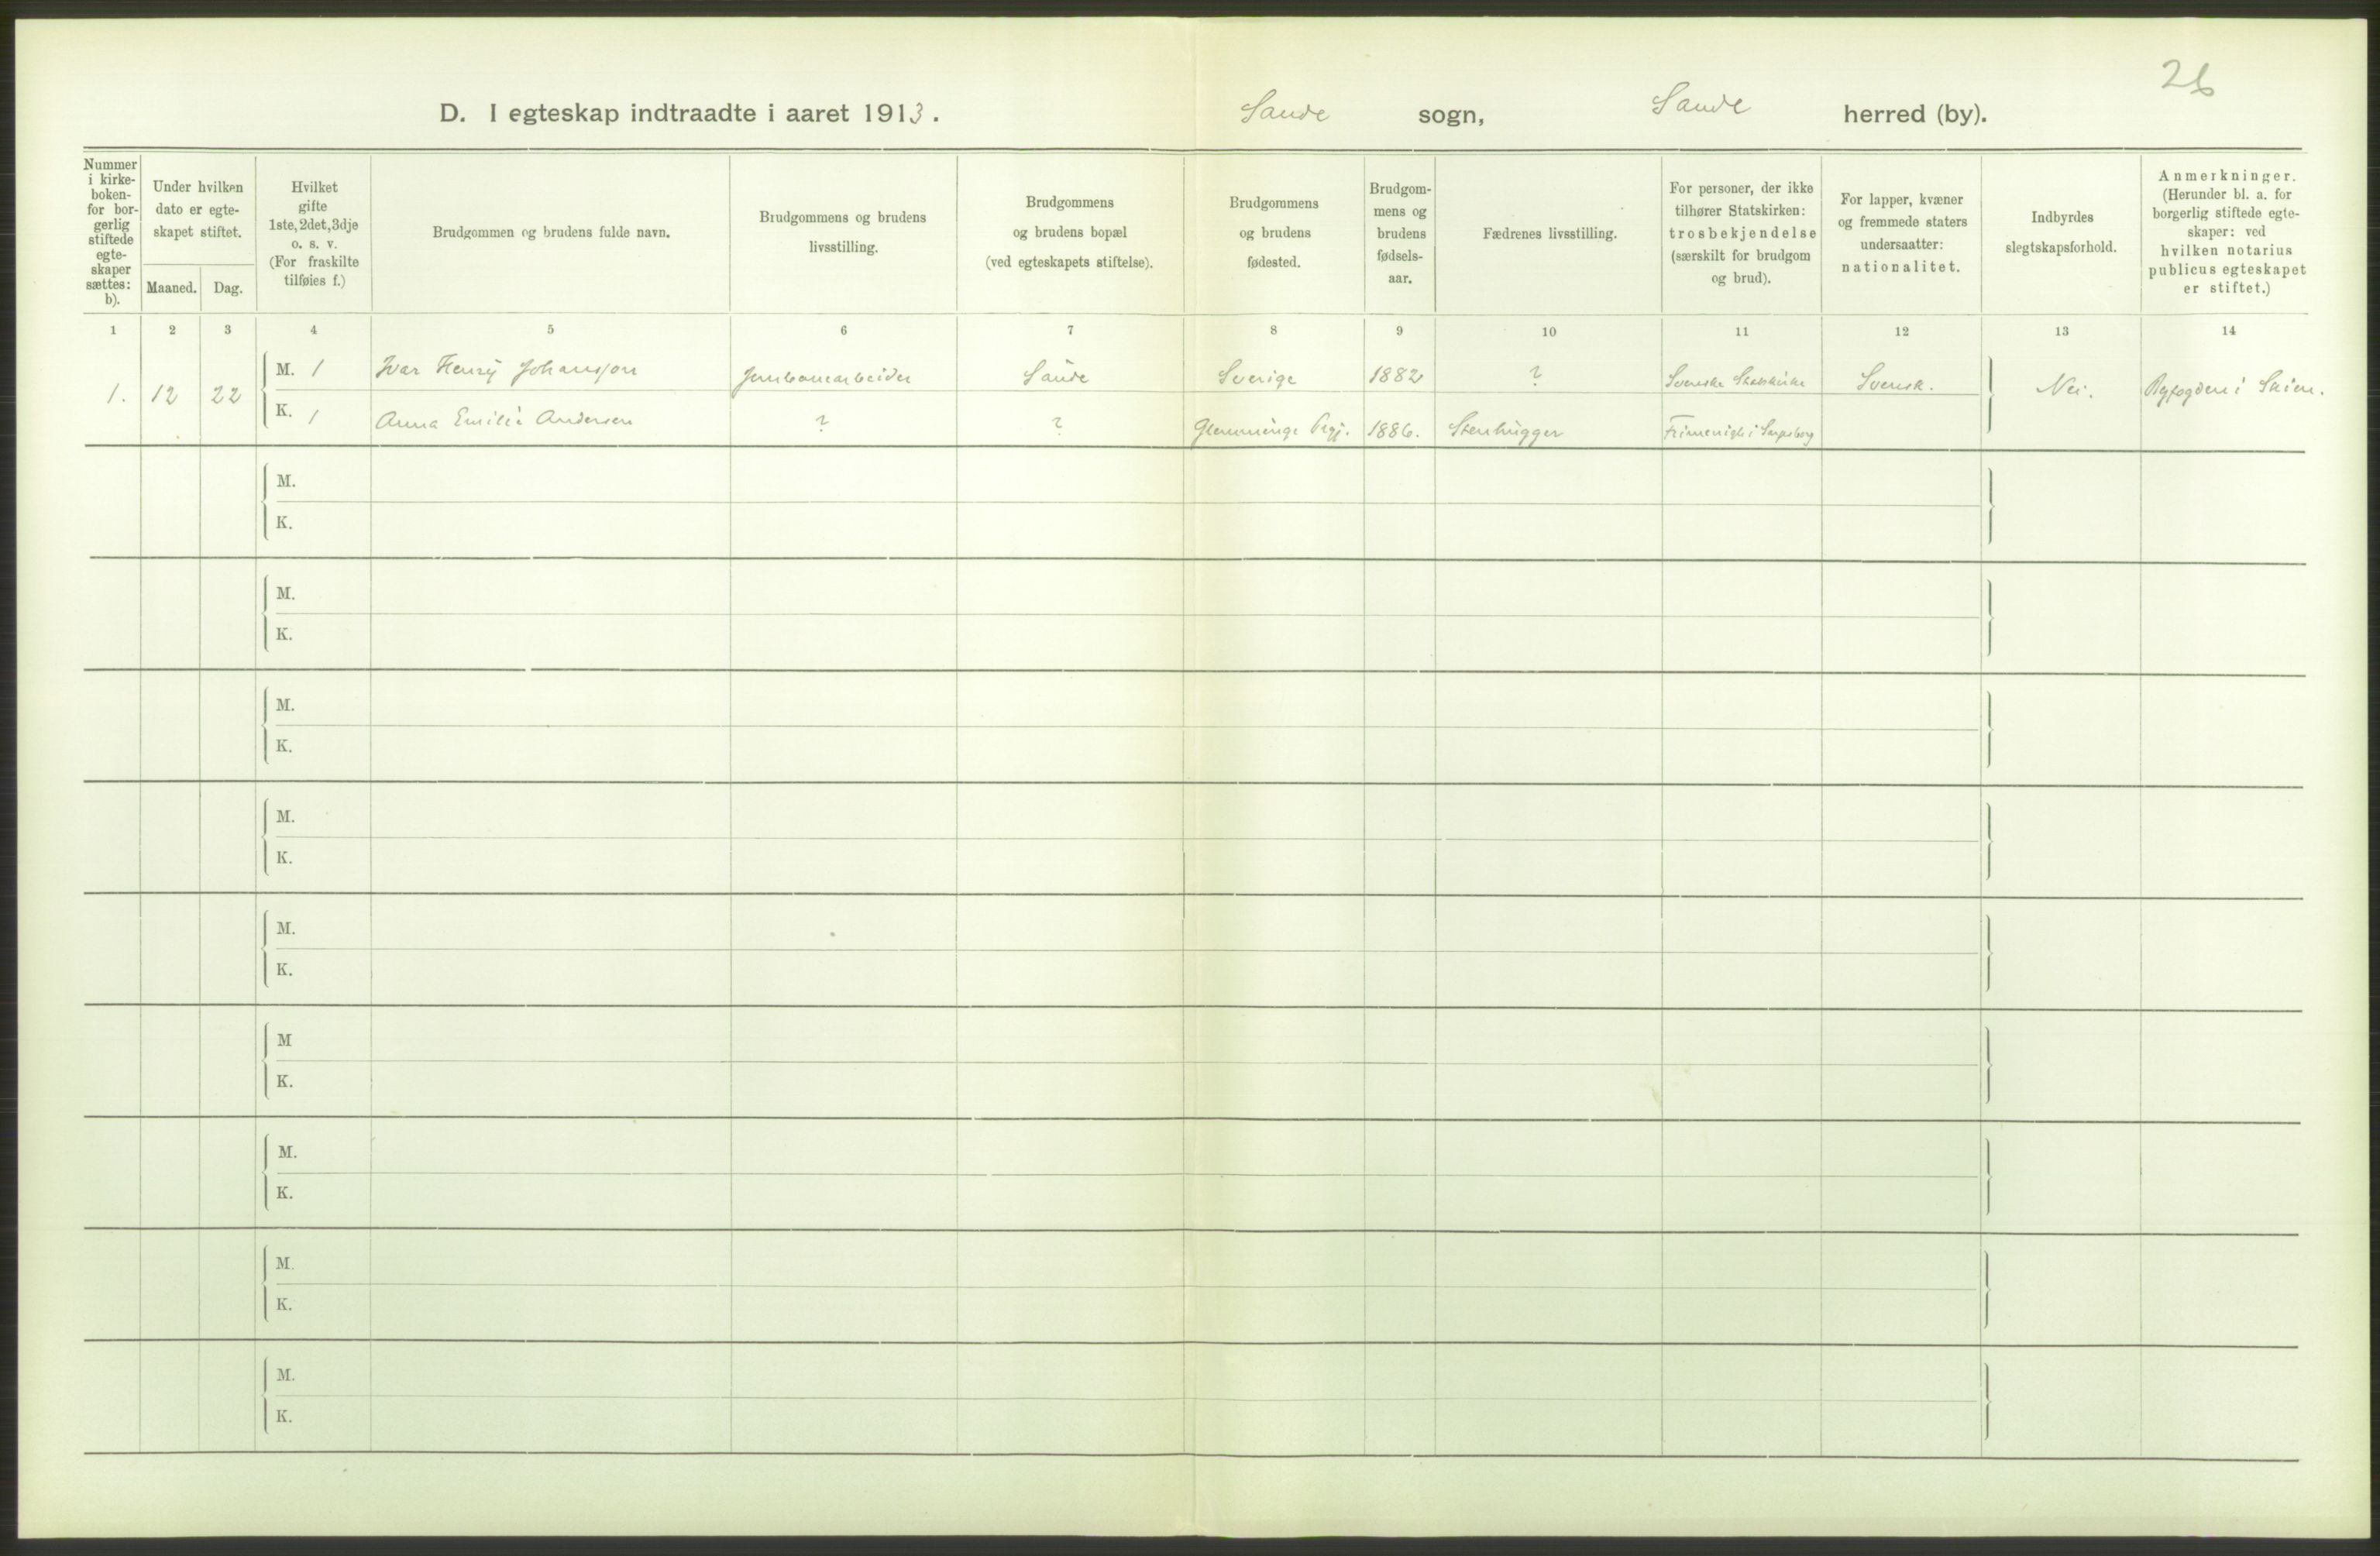 26
D. I egteskap indtraadte i aaret 1913. Sande sogn, Sande herred (by).
Nummer
i kirke-
boken-
for bor-
gerlig
stiftede
egte-
skaper
sættes:
b).
Under hvilken
dato er egte-
skapet stiftet.
Maaned. Dag.
Hvilket
gifte
1ste, 2det, 3dje
o. s. v.
(For fraskilte
tilføies f.)
Brudgommen og brudens fulde navn.
Brudgommens og brudens
livsstilling.
Brudgommens
og brudens bopæl
(ved egteskapets stiftelse).
Brudgommens
og brudens
fødested.
Brudgom-
mens og
brudens
fødsels-
aar.
Fædrenes livsstilling.
For personer, der ikke
tilhører Statskirken:
trosbekjendelse
(særskilt for brudgom
og brud).
For lapper, kvæner
og fremmede staters
undersaatter:
nationalitet.
Indbyrdes
slegtskapsforhold.
Anmerkninger.
(Herunder bl. a. for
borgerlig stiftede egte-
skaper: ved
hvilken notarius
publicus egteskapet
er stiftet.)
1 2 3 4 5 6 7 8 9 10 11 12 13 14
1. 12 22
M. 1 Ivar Henry Johansson Jernbanearbeider Sande Sverige 1882 ? Svenske Statskirke Svensk.
K. 1 Anna Emilie Andersen ? ? Glemminge Prgj. 1886. Stenhugger Frimenigh. i Sarpsborg
Nei. Byfogden i Skien.
M.
K.
M.
K.
M.
K.
M.
K.
M.
K.
M
K.
M.
K.
M.
K.
M.
K.